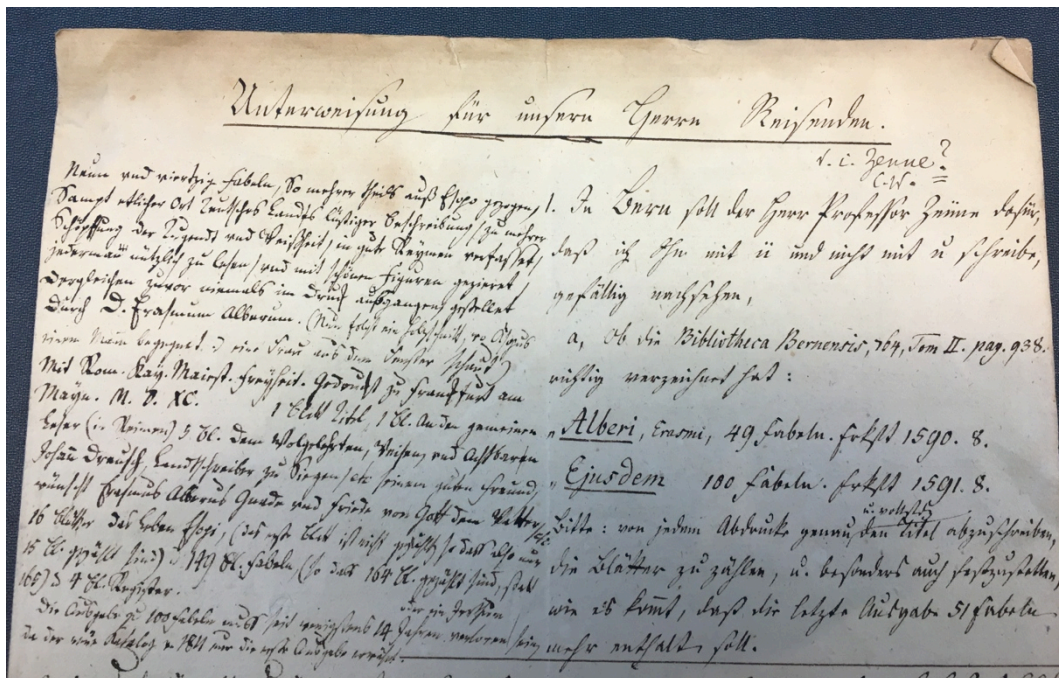 Unterweisung für unsern Herrn Reisenden.
d. i. Zeune?
Neun und viertzig Fabeln, So mehrer theils auß Esopo gezogen,
Sampt etlicher Ort Teutsches Landes lustiger Beschreibung, zu mehrer
Schöpffung der Tugendt und Weißheit, in gute Reymen verfasset,
jederman nützlich zu lesen, und mit schönen Figuren gezieret,
dergleichen zuvor niemals im Druck außgangen, gestellet
durch D. Erasmum Alberum. (Nun folgt ein Holzschnitt, wo Äsopus
einem Mann begegnet. eine Frau aus dem Fenster schaut)
Mit Rom. Kay. Maiest. Freyheit. Gedruckt zu Franckfurt am
Mayn. M. D. XC. 1 Blatt Titel, 1 Bl. An den gemeinen
Leser (in Reimen) 5 Bl. dem Wolgelehrten, Weisen, und Achtbaren
Johan Drausch, Landtschreiber zu Siegen seinem guten Freund,
wünscht Erasmus Alberus Gnade und Friede von Gott dem Vatter,
16 Blätter das Leben Esopi, (das erste Blatt ist nicht gezählt so daß also nur
15 Bl. gezählt sind) 149 Bl. Fabeln, (so daß 164 Bl. gezählt sind, statt
165) 4 Bl. Register.
Die Ausgabe zu 100 Fabeln muß seit wenigstens 14 Jahren verloren sein
da der neue Katalog v. 1811 nur die erste Ausgabe
1. In Bern soll der Herr Professor Zeune dafür,
daß ich Ihn mit ü und nicht mit u schreibe,
gefälligst nachsehen,
a, Ob die Bibliotheca Bernensis, 764, Tom II. pag. 938.
richtig verzeichnet hat:
„Alberi, Erasmi, 49 Fabeln. Frkft 1590. 8.
„Ejusdem 100 Fabeln. Frkft 1591. 8.
u. vollständ
Bitte: von jedem Abdrucke genau, den Titel abzuschreiben,
die Blätter zu zählen, u. besonders auch festzustellen,
wie es kömt, daß die letzte Ausgabe 51 Fabeln
mehr enthalt. soll.